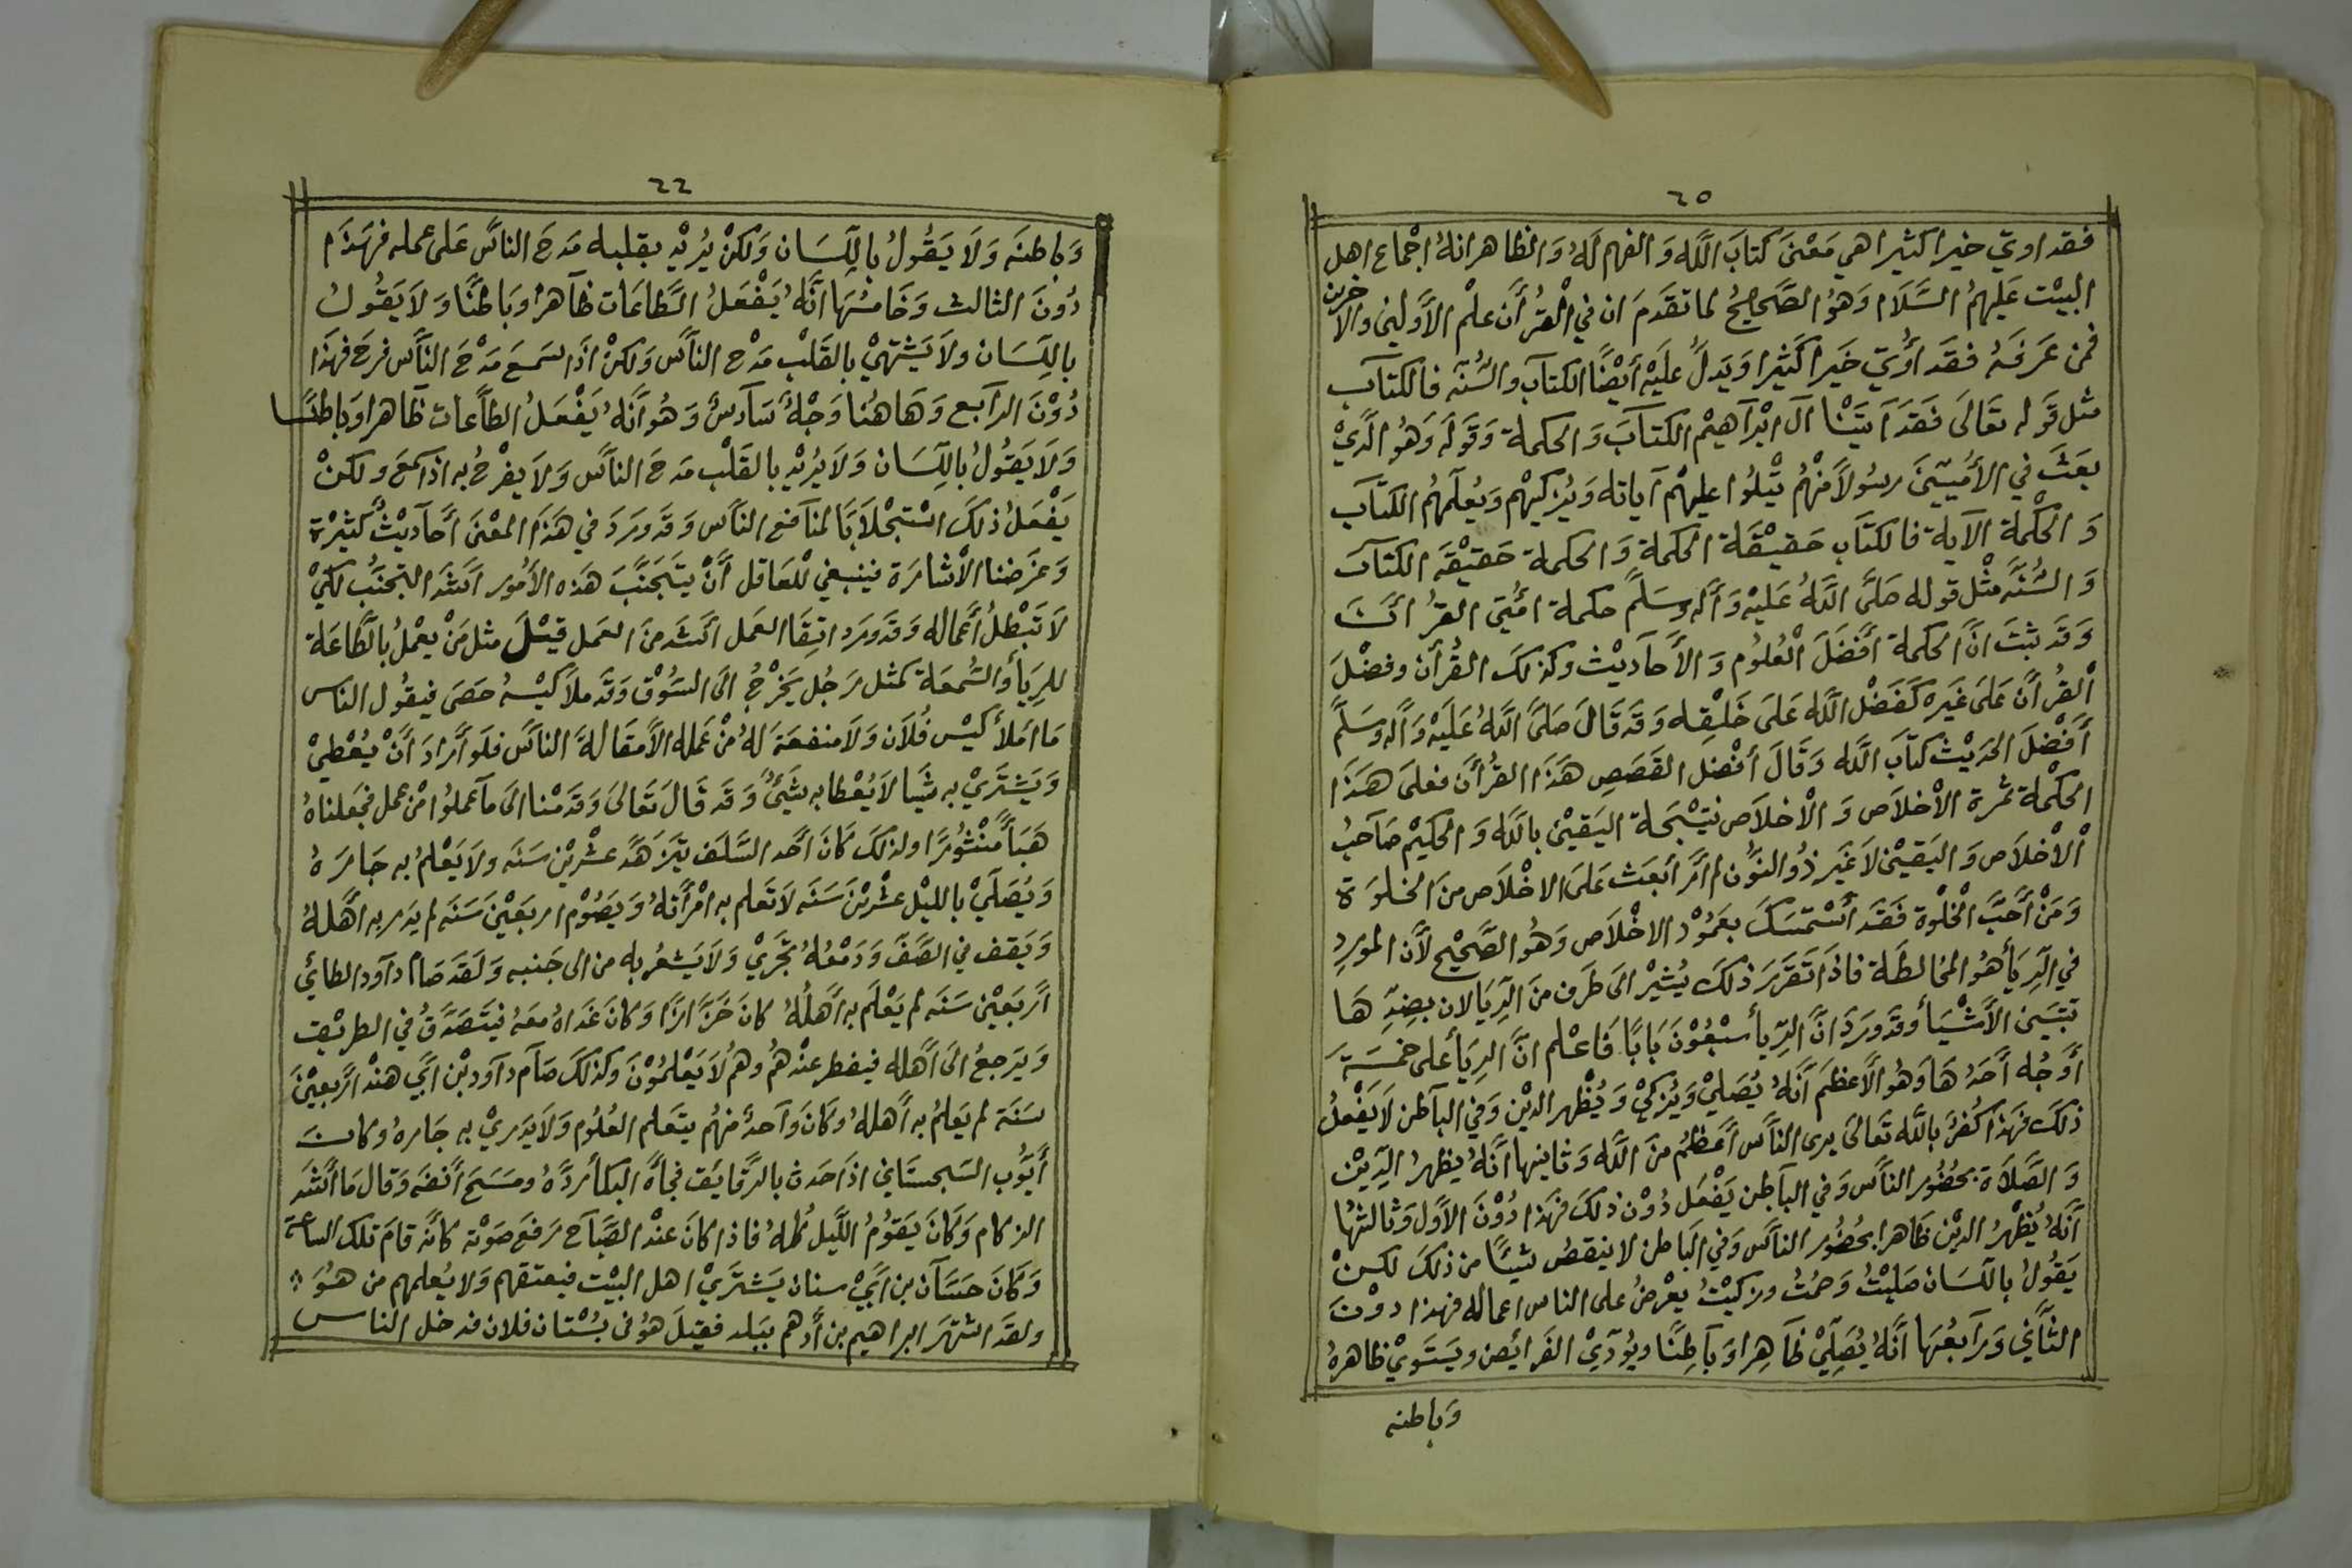 ٢٥
فقد اوتي خيرا كثيرا هي مَعْنىَ كتابَ اللَّه وَالفهم لَهُ وَالظاهر انهُ اجْماع اهل
البيْت عَليهمُ السَّلَام وَهوُ الصَّحيحُ لما تقدمَ ان في القُرأن علْم الأوّلينَ والاخرين
فمن عَرَفهُ فقَد أوُتيَ خَيرا كَثيرًا وَيَدلُ عليَه أيْضًا الكتآب والسُّنّه فالكتآب
مثل قَوله تعَالَى فَقَد آتَيْنَا آل ابْرآهيْم الكتآبَ وَالحكمة وَقَولَه وَهوُ الَّذيْ
بعَثَ في الأمُيّينَ رسُولاً منْهُم يتْلوُا عليهْم آياته وَيُزكيهْم وَيُعلّمهُم الكتَاب
وَ الحْكمة الآية فالكتَاب حَقيْقَة الحكمة وَالحكمة حَقيْقَه الكتآب
وَ السُّنَّه مثْل قوله صَلّىَ اللهُ عَليْه وَأله وسَلَّم حكمة امُّتي القرُ انَ
وَقَد ثبتَ انَّ الحكمة أفْضَلَ الْعُلوُم وَ الأحآديْث وكذلكَ القُرآن وفضْلَ
ألقُرأن عَلىَ غيَره كَفَضْل اللَّه عَلىَ خَلقه وَقَد قَالَ صَلىَّ اللهُ عَليَه وَأله وَسَلَّم
أفْضلَ الحَديْث كتَاب اللَّه وَقَالَ أفْضل القَصَصِ هَذَا القُرأن فعلىَ هَذَا
الحكْمة ثمرة الاْخلاَص وَ الْاخلاَص نتيْجَة اليَقيْن باللَه وَ الحَكيْم صَاحبُ
الْاخلاَص وَ اليَقيْن لاغَير ذُو النوُّن لم أرَ أبْعَث عَلىَ الاخْلَاص منَ الخلوَة
وَمَنْ أحَبّ الْخلْوة فقَد أسْتمسَكَ بعَموُد الاخْلَاص وَهوُ الصَّحيْح لأن المورد
في الرّيَأ هوُ المخالطَة فاذَا تَقرَرَ ذلكَ يُشيْر الىَ طَرَف منَ الرّيَا لان بضِدّ هَا
تتبَين الأشْيَأ وقَد وَرَدَ انَّ الرّيأ سبْعُوْنَ بَابًا فَاعْلم انَّ الريَأ على خمسَة
أوجُه أحَدُ هَا وَهوُ الأعظمَ أنَّهُ يُصَليْ وَيُزَكيْ وَيُظْهر الديْن وَفي البآطن لَا يَفْعلُ
ذلكَ فهَذَا كُفرٌ باللَّه تَعَالىَ يرى النآس أعْظمُ منَ اللَّه وَثانيها انَّهُ يظهرُ الدّيْن
وَ الصَّلَاة بحضُور النآس وَفي البآطن يَفْعَل دُوْن ذلكَ فهَذَا دُوْنَ الأوَل وَثالثهُا
أنَّهُ يُظهْرُ الديْن ظَاهرا بحُضُور النآس وَفي البَاطن لا ينقصُ شيْئًا من ذلكَ لكنْ
يَقوُلُ باللّسَان صَليْتُ وَصُمْتُ وزكيْتُ يعْرضُ على الناس اعماله فهذا دوْنَ
الثآني وَرَآبعُهَا أنَّهُ يُصَليْ ظَاهِرا وَبَآطنًا ويُؤدّي الفَرآئض ويَسْتَويْ ظاهرهُ
وَباطنه
٢٢
وَبَاطنَه وَلَا يَقُولُ باللّسَان وَلكنْ يُريْد بقلبه مَدحَ الناس عَلى عمله فهَذَا
دُونَ الثالث وَخَامسُهَا أنَّهُ يَفْعَلُ الطَّاعَات ظآهرا وَبَاطنًا وَلَا يَقوُلُ
باللّسَان ولاَ يَشتهيْ بالقَلْب مَدْح الناس وَلكنْ اذَا سَمعَ مَدْحَ النآس فرحَ فهَذَا
دُوْنَ الرآبع وَهَاهُنا وَجْهٌ سَآدسٌ وَهوُ أنَّهُ يَفْعَلُ الطّاعات ظاهرا وَباطنًا
وَلَا يَقوُلُ باللّسَان وَلَا يُريْد بالقَلْب مَدحَ النآس وَلَا يفرْحُ به اذا سمعَ ولكنْ
يَفْعَلُ ذلكَ اسْتجْلَابًا لمنآفع النآس وَقَد ورَدَ في هَذَا المعْنىَ أحَآديْثُ كثيْرة
وَغَرَضنا الأشارَة فينبغي للْعَاقل أنْ يتَجَنَّبَ هَذه الأموُر أشَد التجنُب لكَيْ
لَا تَبْطلُ أعْماله وَقَد ورَد اتقَا العَمل اشَد منَ العَمل قيْلَ مثل مَنْ يعْملُ بالطَّاعَة
للريَأ وَالسُّمعَة كمثل رَجُل يَخْرجُ الىَ السّوُق وَقَد ملأ كيْسهُ حَصَى فيقُول الناس
مَا امْلأ كيْس فُلَان وَلَا منفعَة لهُ منْ عَمله الأمَقَالهَ الناس فلَو أرَادَ أنْ يُعْطيْ
وَيَشْتَريْ به شيَا لاَيُعْطا به شَيْئٌ وَقَد قَالَ تَعَالىَ وَقَدمْنا الىَ مَا عملوُا منْ عمل فجَعلناهُ
هَبَأً مَنْثوُرًا ولذلكَ كانَ أحَد السَّلَف يَتَزَهَّد عشْريْن سَنَه ولَا يَعْلمُ به جَارَهُ
وَيُصَليْ بالليْل عشْريْنَ سَنَه لَا تَعلم به امْرأتهُ وَيَصُوْم اربَعيْنَ سَنَه لم يَدر به أهْلهُ
وَيَقف في الصَّفَ وَدَمْعهُ يَجْريْ وَلَا يَشعُر به من الى جَنبه وَلَقد صَامَ دآود الطائي
أربَعيْن سَنَه لم يَعْلَم به أهْلُهُ كانَ خَزَّازًا وَكَانَ غَدَاهُ مَعَهُ فيتَصَدّقُ في الطريْق
وَيَرجعُ الىَ أهْله فيفطر عنْدهُم وهُم لَا يَعْلموُنَ وكَذلكَ صَآم دآود بْن ابي هنْد اربَعيْنَ
سَنَة لم يَعلمُ به أهْلهُ وَكَانَ وَآحدٌ منهُم يتَعَلم العُلُوم وَلَا يَدريْ به جَارهُ وكانَ
أيّوُب السَجستَاني اذَا حَدث بالرَّقايَق فجَأهُ البكأ رَدَّهُ ومَسَحَ أنفَه وَقالَ مَا أشَدَ
الزكام وَكَانَ يَقوُمُ اللّيل كُلهُ فاذا كانَ عنْد الصَّبَاح رَفعَ صَوْته كانَّه قامَ تلكَ الساعة
وَكَانَ حَسَّان بن أبيْ سنان يَشتَريْ اهل البيْت فيعتقهم وَلا يُعلمهم من هوُ
ولقَد اشتهَر ابراهيم بن أدهم ببَلد فقيلَ هوُ في بُسْتان فلان فدخل الناس